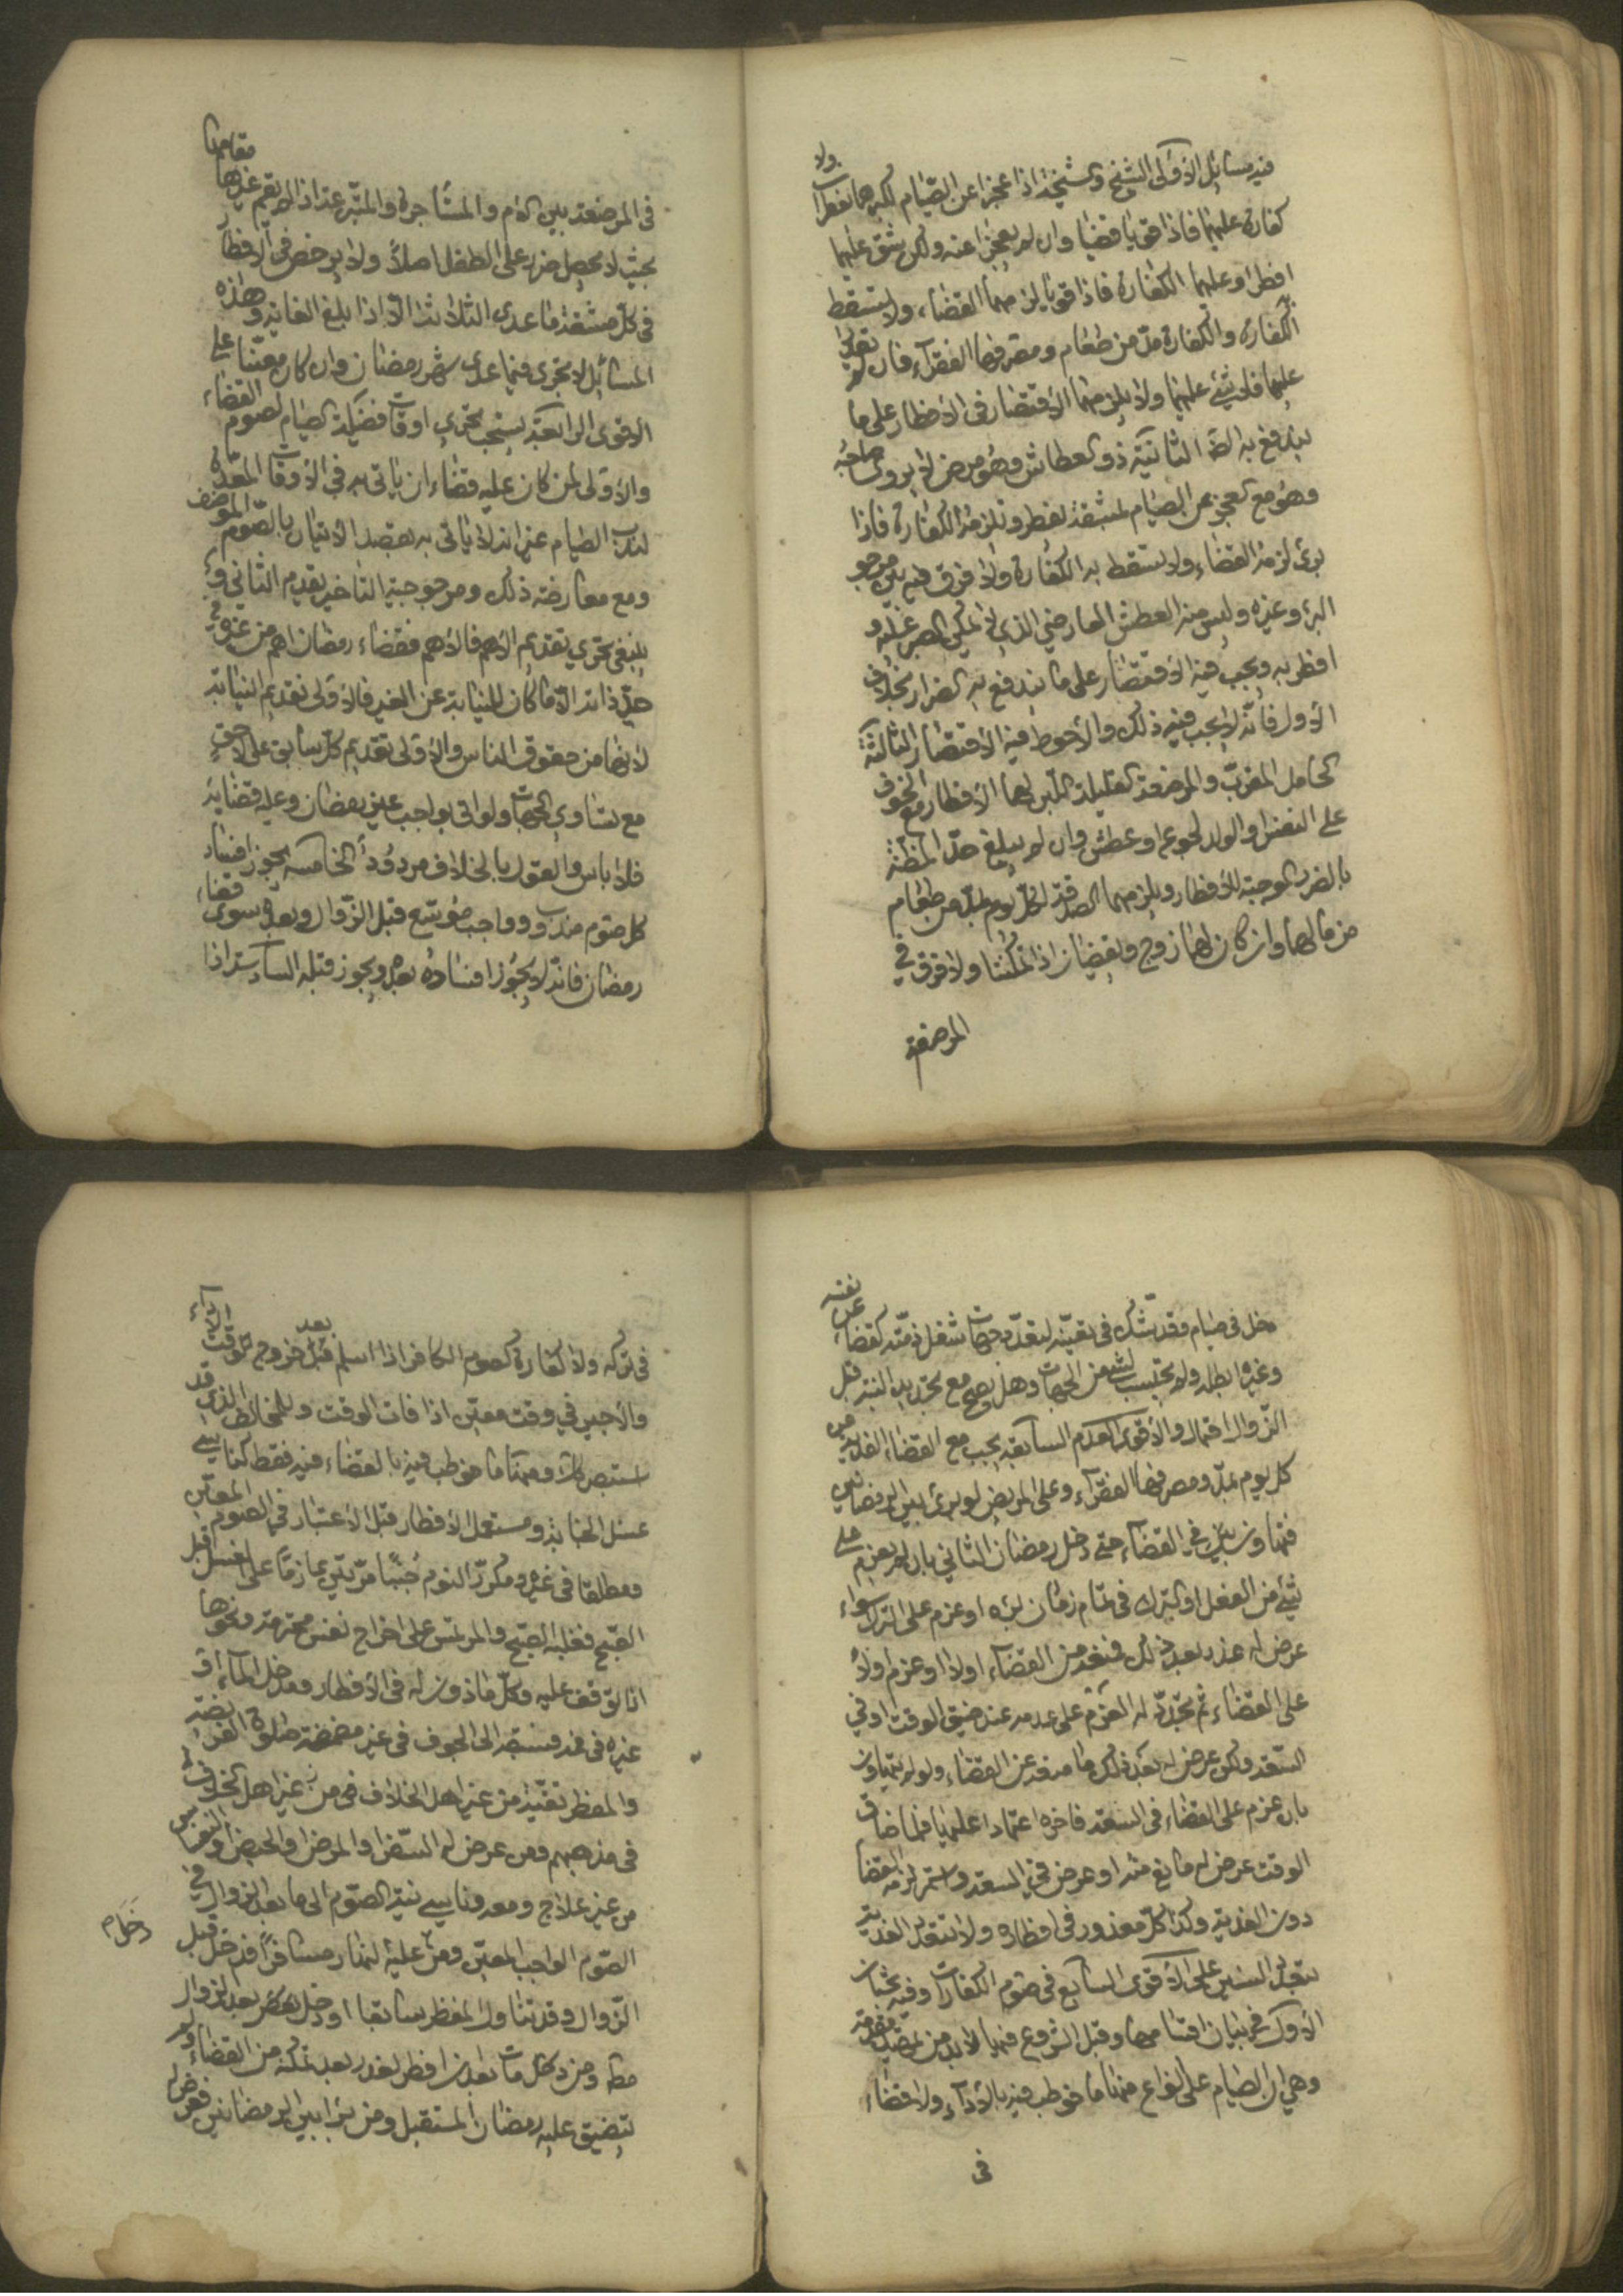 فيه مسائل الاولى الشيخ والشيخة اذا عجزا عن الصيام لكبرهما يفطران ولا
كفارة عليهما فاذا قويا قضيا وان لم يعجزا عنه ولكن شق عليهما
افطرا وعليهما الكفارة فاذا قويا لزمهما القضاء ولا يسقط
الكفارة والكفارة مدّ من طعام ومصرفها الفقراء فان لم يقدرا
عليها فلا شئ عليهما ولا يلزمهما الاقتصار فى الافطار على ما
يندفع به الضر الثانية ذو العطاش وهو مرض لا يروى صاحبه
وهو مع العجز عن الصيام لمشقة يفطر وتلزمه الكفارة فاذا
برئ لزمه القضاء ولا يسقط به الكفارة ولا فرق فيه بين مرجو
البرء وغيره وليس منه العطش العارضي الذي لا يمكن الصبر عليه و
افطر به ويجب فيه الاقتصار على ما يندفع به الضرار بخلاف
الاول فانّه لا يجب فيه ذلك والاحوط فيه الاقتصار الثالثة
الحامل المقرب والمرضعة القليلة اللبن لهما الافطار مع الخوف
على النفس او الولد لجوع او عطش وان لم يبلغ حدّ المظنّة
بالضرر الموجبة للافطار ويلزمهما الصدقة لكل يوم بمدّ من طعام
من مالهما وان كان لهما زوج ويقضيان اذا تمكنتا ولا فرق في
المرضعة
في المرضعة بين الام والمستأجرة والمتبرعة اذا لم يقم غيرها مقامها
بحيث لا يحصل ضرر على الطفل اصلاً ولا يرخص في الافطار
في كلّ مشقة ما عدى الثلاثة الاّ اذا بلغ الغاية وهذه
المسائل لا تجرى فيما عدى شهر رمضان وان كان معيّنا على
الاقوى الرابعة يستحب تحرى اوقات فضيلة الصيام لصوم القضاء
والاولى لمن كان عليه قضاء ان ياتى به في الاوقات المعدة
لندب الصيام غير انه لا ياتى به بقصد الاتيان بالصوم الموظف
ومع معارضة ذلك ومرجوحية التاخير يقدم الثاني و
ينبغى تحري تقديم الاهم فالاهم فقضاء رمضان اهم من غيره في
حدّ ذاته الاّ ما كان للنيابة عن الغير فالاولى تقديم النيابة
لانها من حقوق الناس والاولى تقديم كلّ سابق على لاحق
مع تساوى الجهات ولو اتى بواجب غير رمضان وعليه قضايه
فلا باس والقول بالخلاف مردود الخامسة يجوز افساد
كل صوم مندب وواجب موسّع قبل الزّوال وبعده سوى قضاء
رمضان فانّه لا يجوز افساده بعده ويجوز قبله السادسة اذا
دخل في صيام فقد شك في تعيّنه لتعدّد جهات شغل ذمته كقضاء عن نفسه
وغيره ابطله ولا يحتسب لشئ من الجهات وهل يصح مع تجديد النية قبل
الزّوال احتمال والاقوى العدم السابعة يجب مع القضاء الفدية عن
كل يوم بمدّ ومصرفها الفقراء وعلى المريض لو برئ بين الرمضانين
فتهاون في القضاء حتى دخل رمضان الثاني بان لم يعزم على
شئ من الفعل او الترك في تمام زمان برئه او عزم على الترك سواء
عرض له عذر بعد ذلك فمنعه من القضاء اولا او عزم اولاً
على القضاء ثم تجدّد له العزم على عدمه عند ضيق الوقت او في
السّعة ولكن عرض له بعد ذلك ما منعه عن القضاء ولو لم يتهاون
بان عزم على القضاء في السّعة فاخره اعتمادا عليها فلما ضاق
الوقت عرض له مانع منه او عرض في السعة واستمر لزمه القضا
دون الفدية وكذا كلّ معذور في افطاره ولا تتعدّد الفدية
بتعدّد السنين على الاقوى السابع في صوم الكفارات وفيه بحثان
الاول في بيان اقسامها وقبل الشروع فيها لا بد من تمهيد مقدمة
وهي ان الصيام على انواع منها ما خوطب فيه بالادآء ولا قضاء
في
في تركه ولا كفارة كصوم الكافر اذا اسلم قبل بعد خروج الوقت الاداء
والاجير في وقت معيّن اذا فات الوقت وللمخالف الذي قد
استبصر ومنها ما خوطب فيه بالقضاء فيه فقط كناسى
غسل الجنابة ومستعمل الافطار قبل الاعتبار في الصوم المعيّن
ومطلقا في غيره ومكرّر النوم جُنبًا مرّتين عازمًا على الغسل قبل
الصبح فغلبه الصبح والمرتمس على اخراج نفس محترمة ونحوها
اذا توقف عليه وكلّ ماذون له في الافطار ومدخل الماء او
غيره في فمه فسبقه الى الجوف في غير مضمضة صلوة الفريضة
والمفطر تقيّة من غير اهل الخلاف في من غير اهل الخلاف
في مذهبهم ومن عرض له السفر او المرض او الحيض او النفاس
من غير علاج ومعه وناسى نية الصّوم الى ما بعد الزوال في
الصوم الواجب المعيّن ومن عليه النهار مسافرًا فدخل قبل
دخل م
الزّوال وقد تناول المفطر سابقا او دخل بعد الزوال
مطلقا ومن مات بعد ان افطر لعذر بعد تمكنه من القضاء ولم
يتضيق عليه رمضان المستقبل ومن برأ بين الرمضانين فعرض له